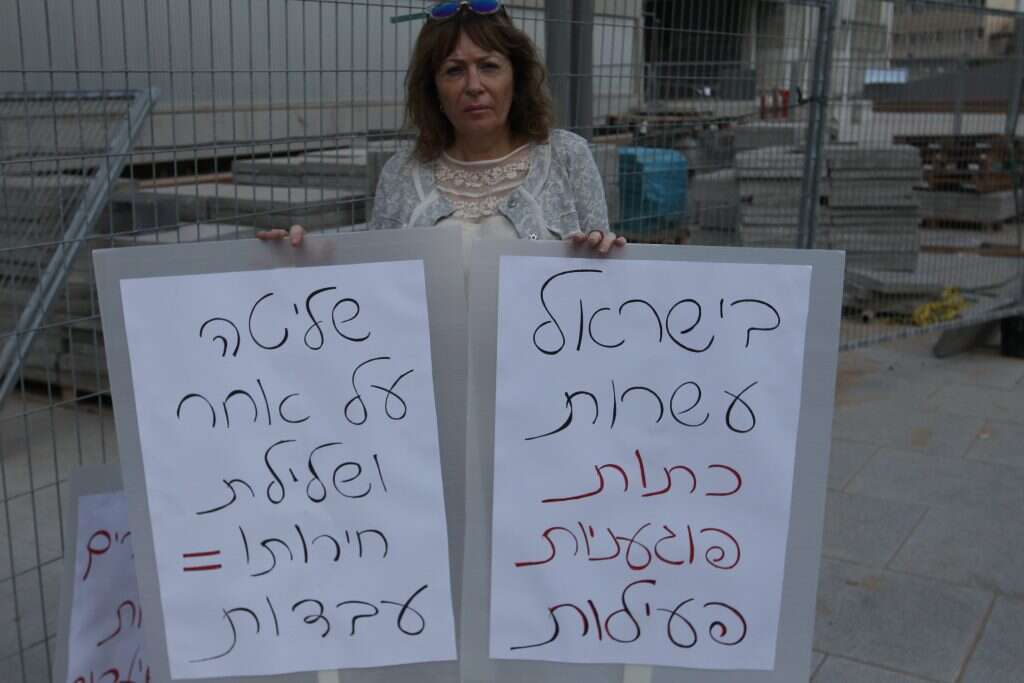 בישראל
עשרות
כתות
פוגעניות
פעילות
שליטה
על אחר
ושלילת
חירותו =
עבדות